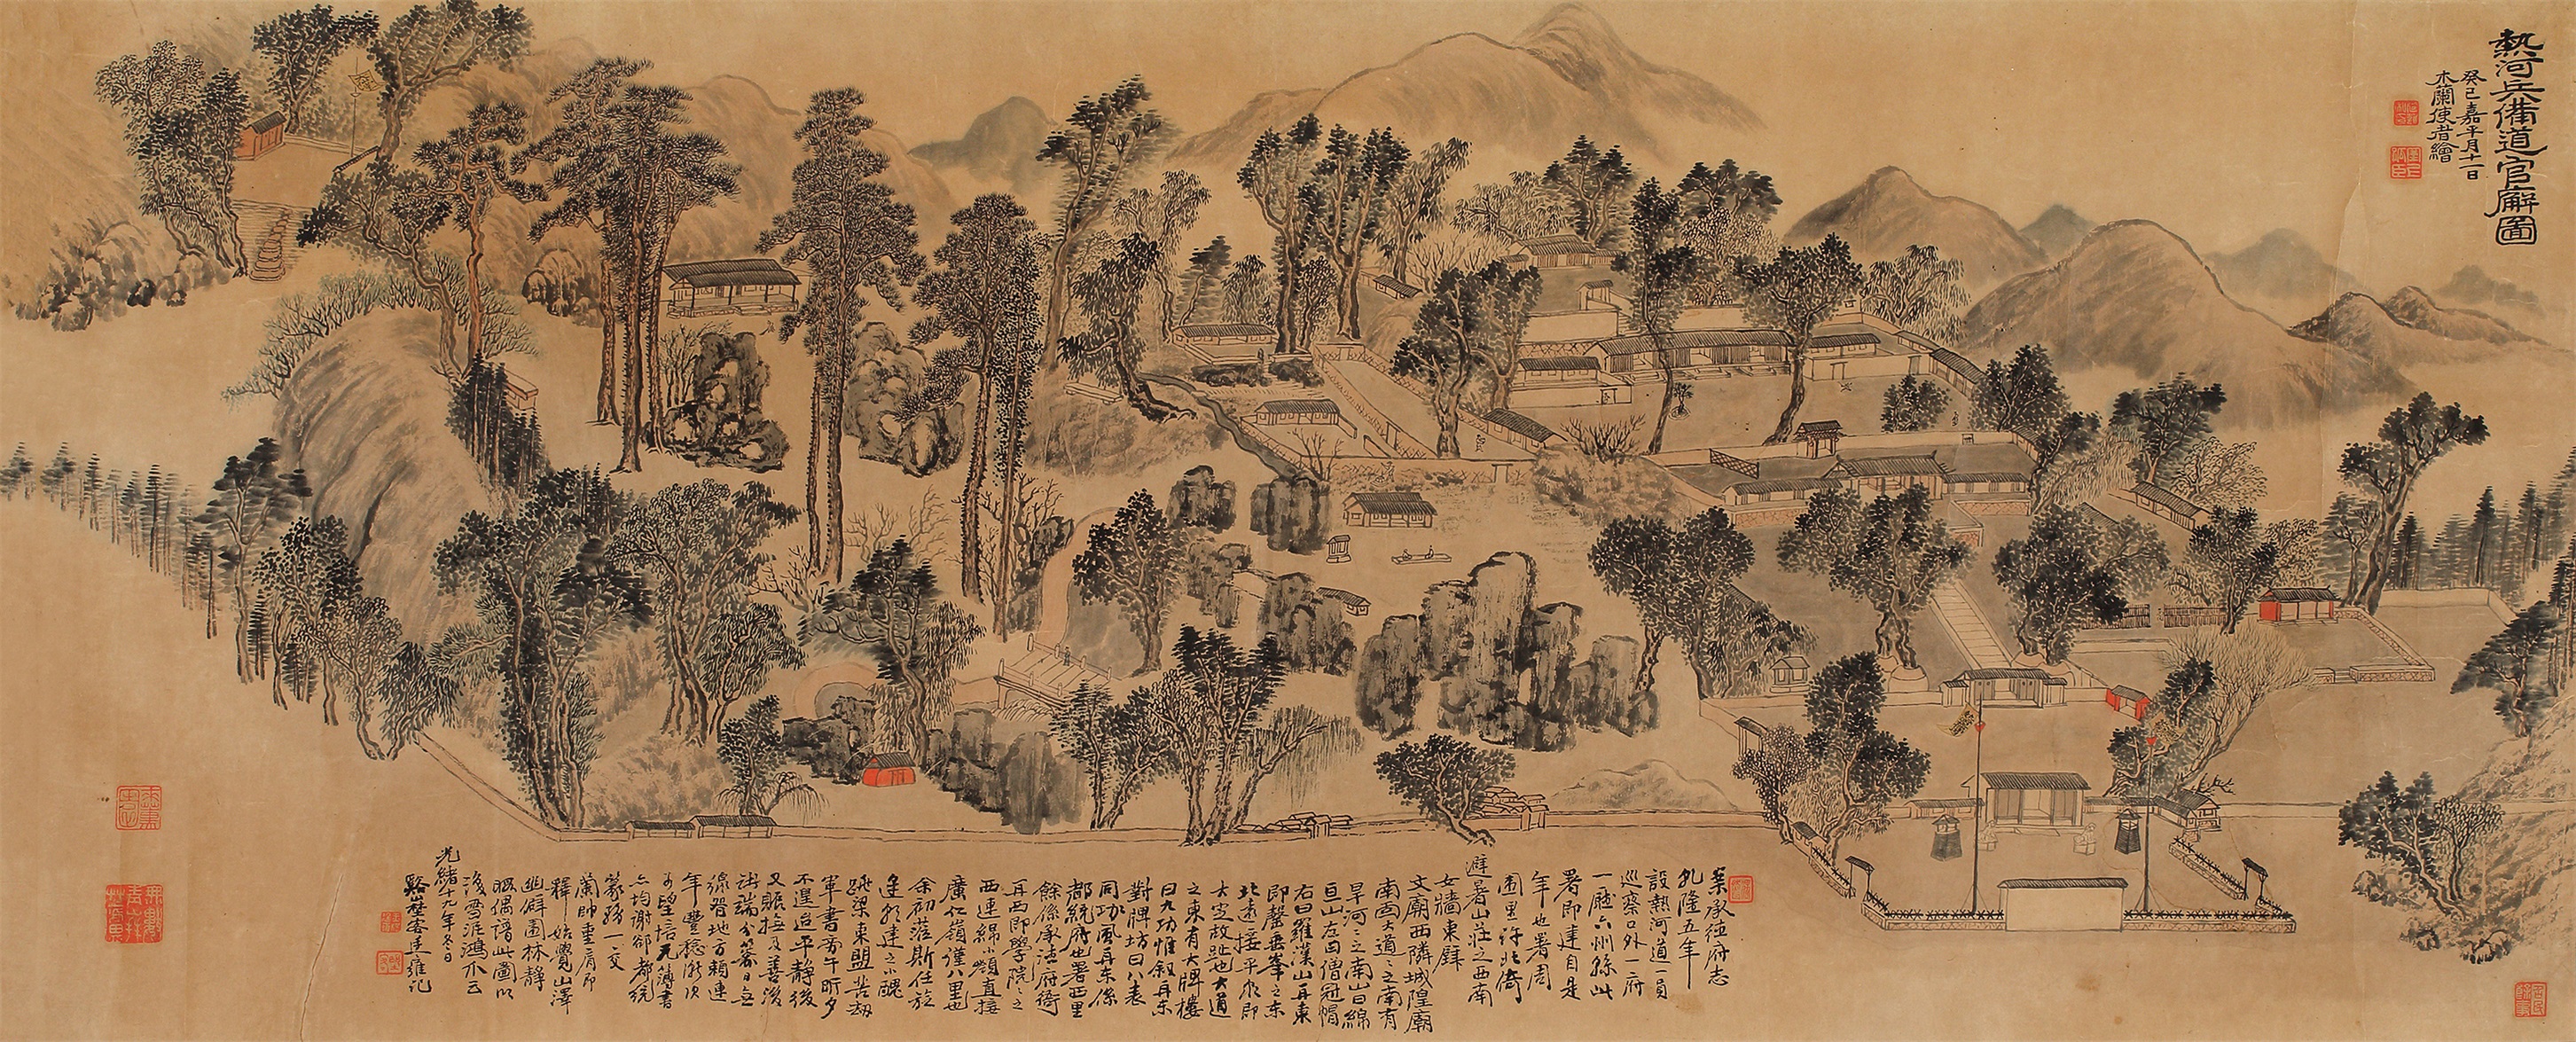 熱河兵備道官廨圖
癸巳嘉平月十一日
木蘭使者繪
案承德府志
乾隆五年
設熱河道一員
巡察口外一府
一廳六州縣此
署即建自是
年也署周
圍里許北倚
避暑山莊之西南
女牆東壁
文廟西隣城隍廟
南面大道之南有
旱河之南山曰綿
亘山左曰僧冠帽
右曰羅漢山再東
即罄垂峯之東
北遠接平泉即
大寧故址也大道
之東有大牌樓
曰九功惟敘再東
對牌坊曰八表
同風再東係
都統府也署西里
餘係承德府衙
再西即學院之
西連綿小嶺直接
廣仁嶺僅八里也
余初蒞斯任於
逢彩建之小醜
跳梁東盟苦劫
軍書旁午昕夕
不遑迨平靜後
又賑撫及善後
諸端分籌日無
暇晷地方賴連
年豐稔漸次
元簿書
亦均謝卻都統
篆務一交
蘭帥重肩即
釋始覺山澤
幽僻園林靜
暇偶譜此圖以
後雪泥鴻爪云
光緒十九年冬日
谿山歷客廷雍記